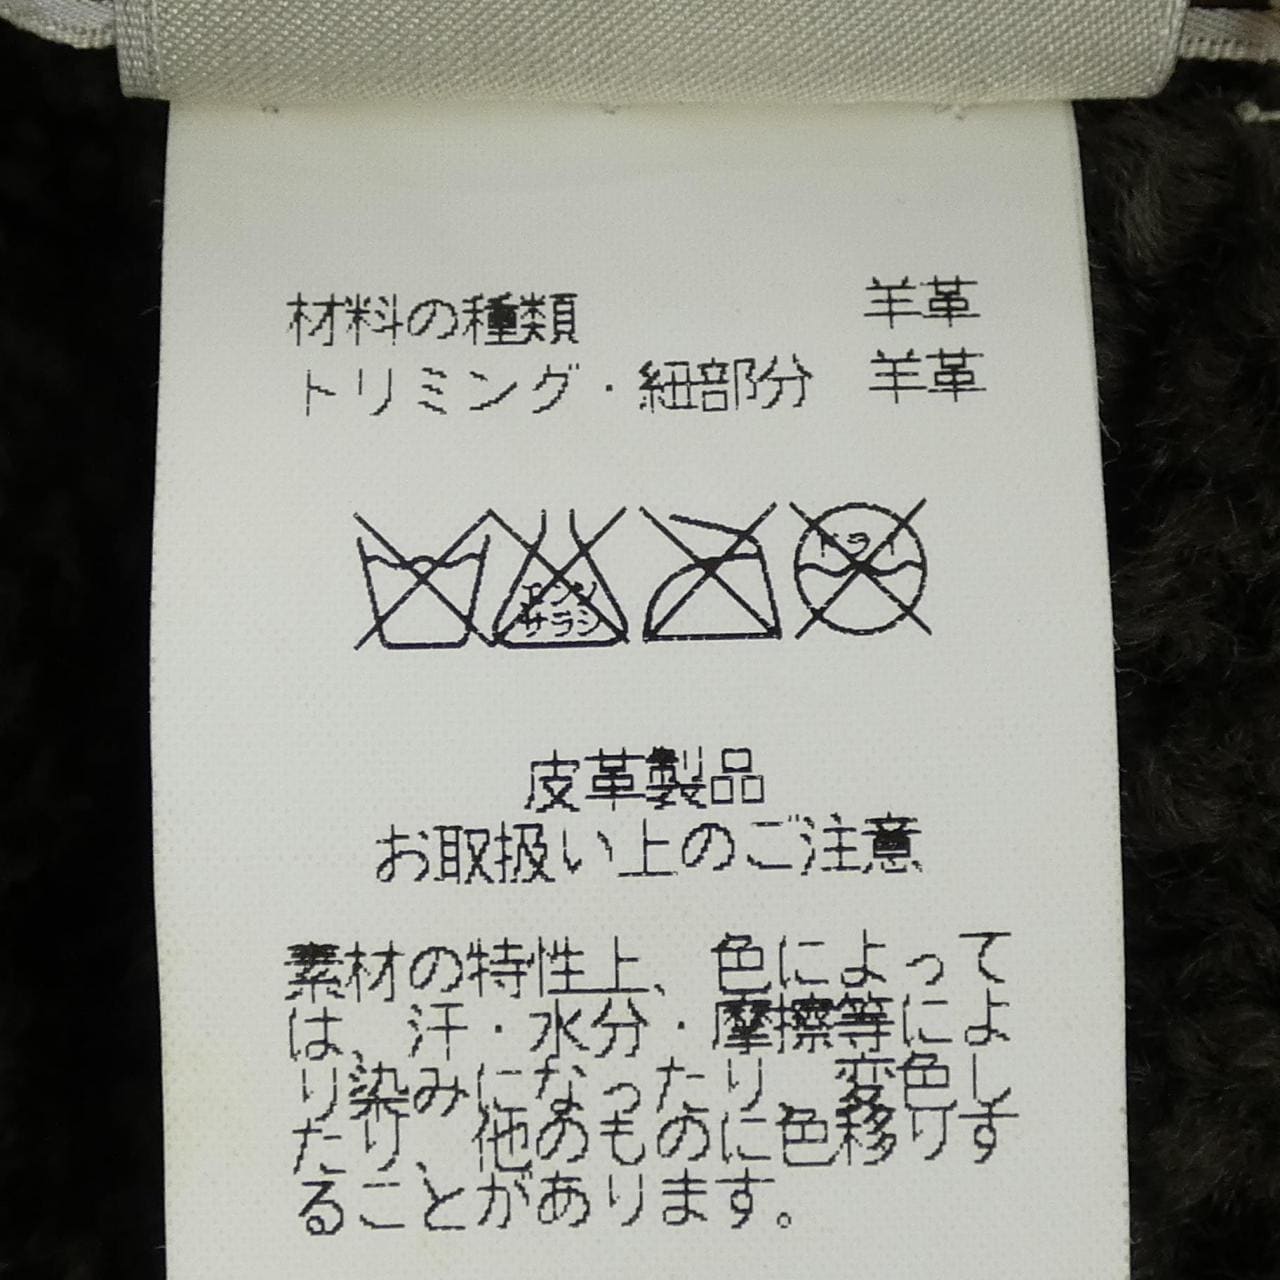 材料の種類 羊革
トリミング・紐部分 羊革
エンソ
サラシ
ドライ
皮革製品
お取扱い上のご注意
素材の特性上、色によって
は、汗・水分・摩擦等によ
り染みになったり、変色し
たり、他のものに色移りす
ることがあります。